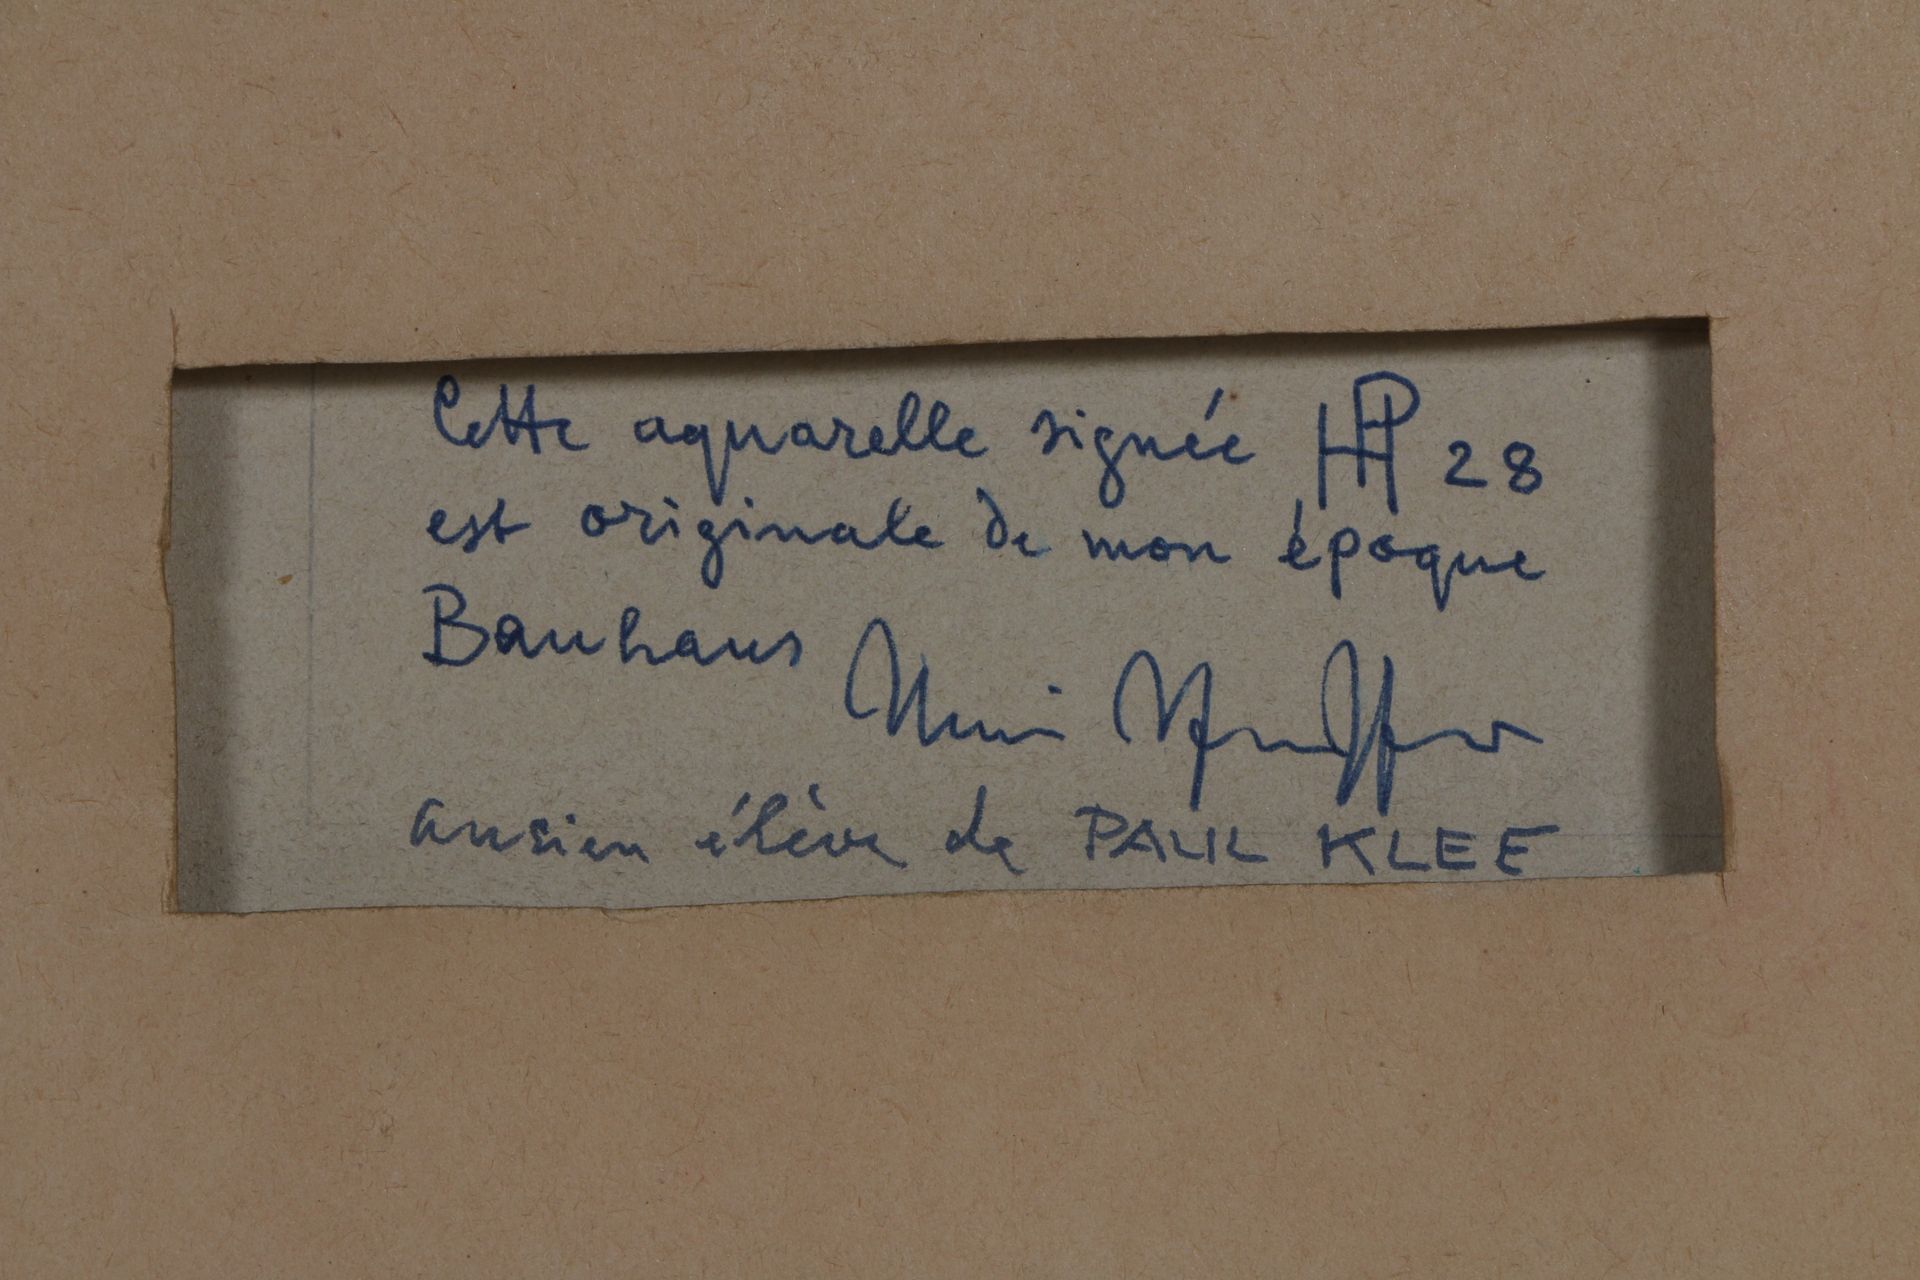 Cette aquarelle signée HP 28
est originale de mon époque
Bauhaus
ansien élève de PAUL KLEE